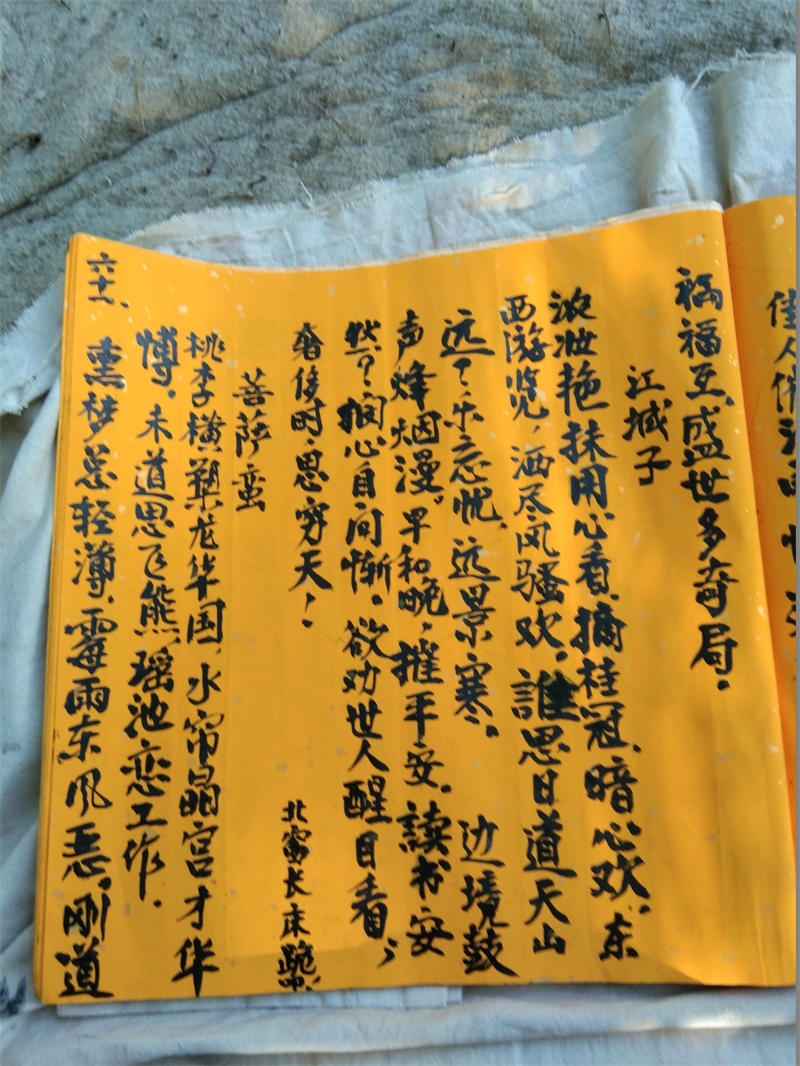 祸福互、盛世多奇局。
江城子
浓妆艳抹用心看、摘桂冠、暗心欢、东
西游览，洒尽风骚欢。谁思日道天山
远？乐忘忧、远景寒。 边境鼓
声烽烟漫。早和晚，摧平安。读书安
然？扪心自问惭。欲劝世人醒目看，
奢侈时，思穷天！
北富长床
菩萨蛮
桃李横槊龙华国、水帘晶宫才华
博。未道思飞熊，瑶池恋工作。
熏梦总轻薄、霉雨东风恶。刚道
六十一、
佳人